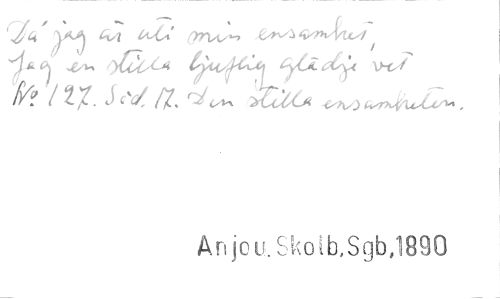 Då jag är uti min ensamhet,
Jag en stilla ljuflig glädje vet
No 127. Sid. 17. Den stilla ensamheten.
Anjou. Skolb, Sgb, 1890